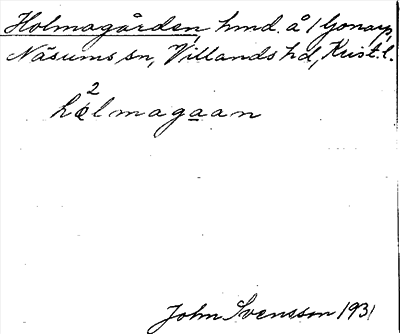 Holmagården, hmd. å 1 Gonarp,
Näsums sn, Villands hd, Krist. l.
hå2lmagaan
John Svensson 1931